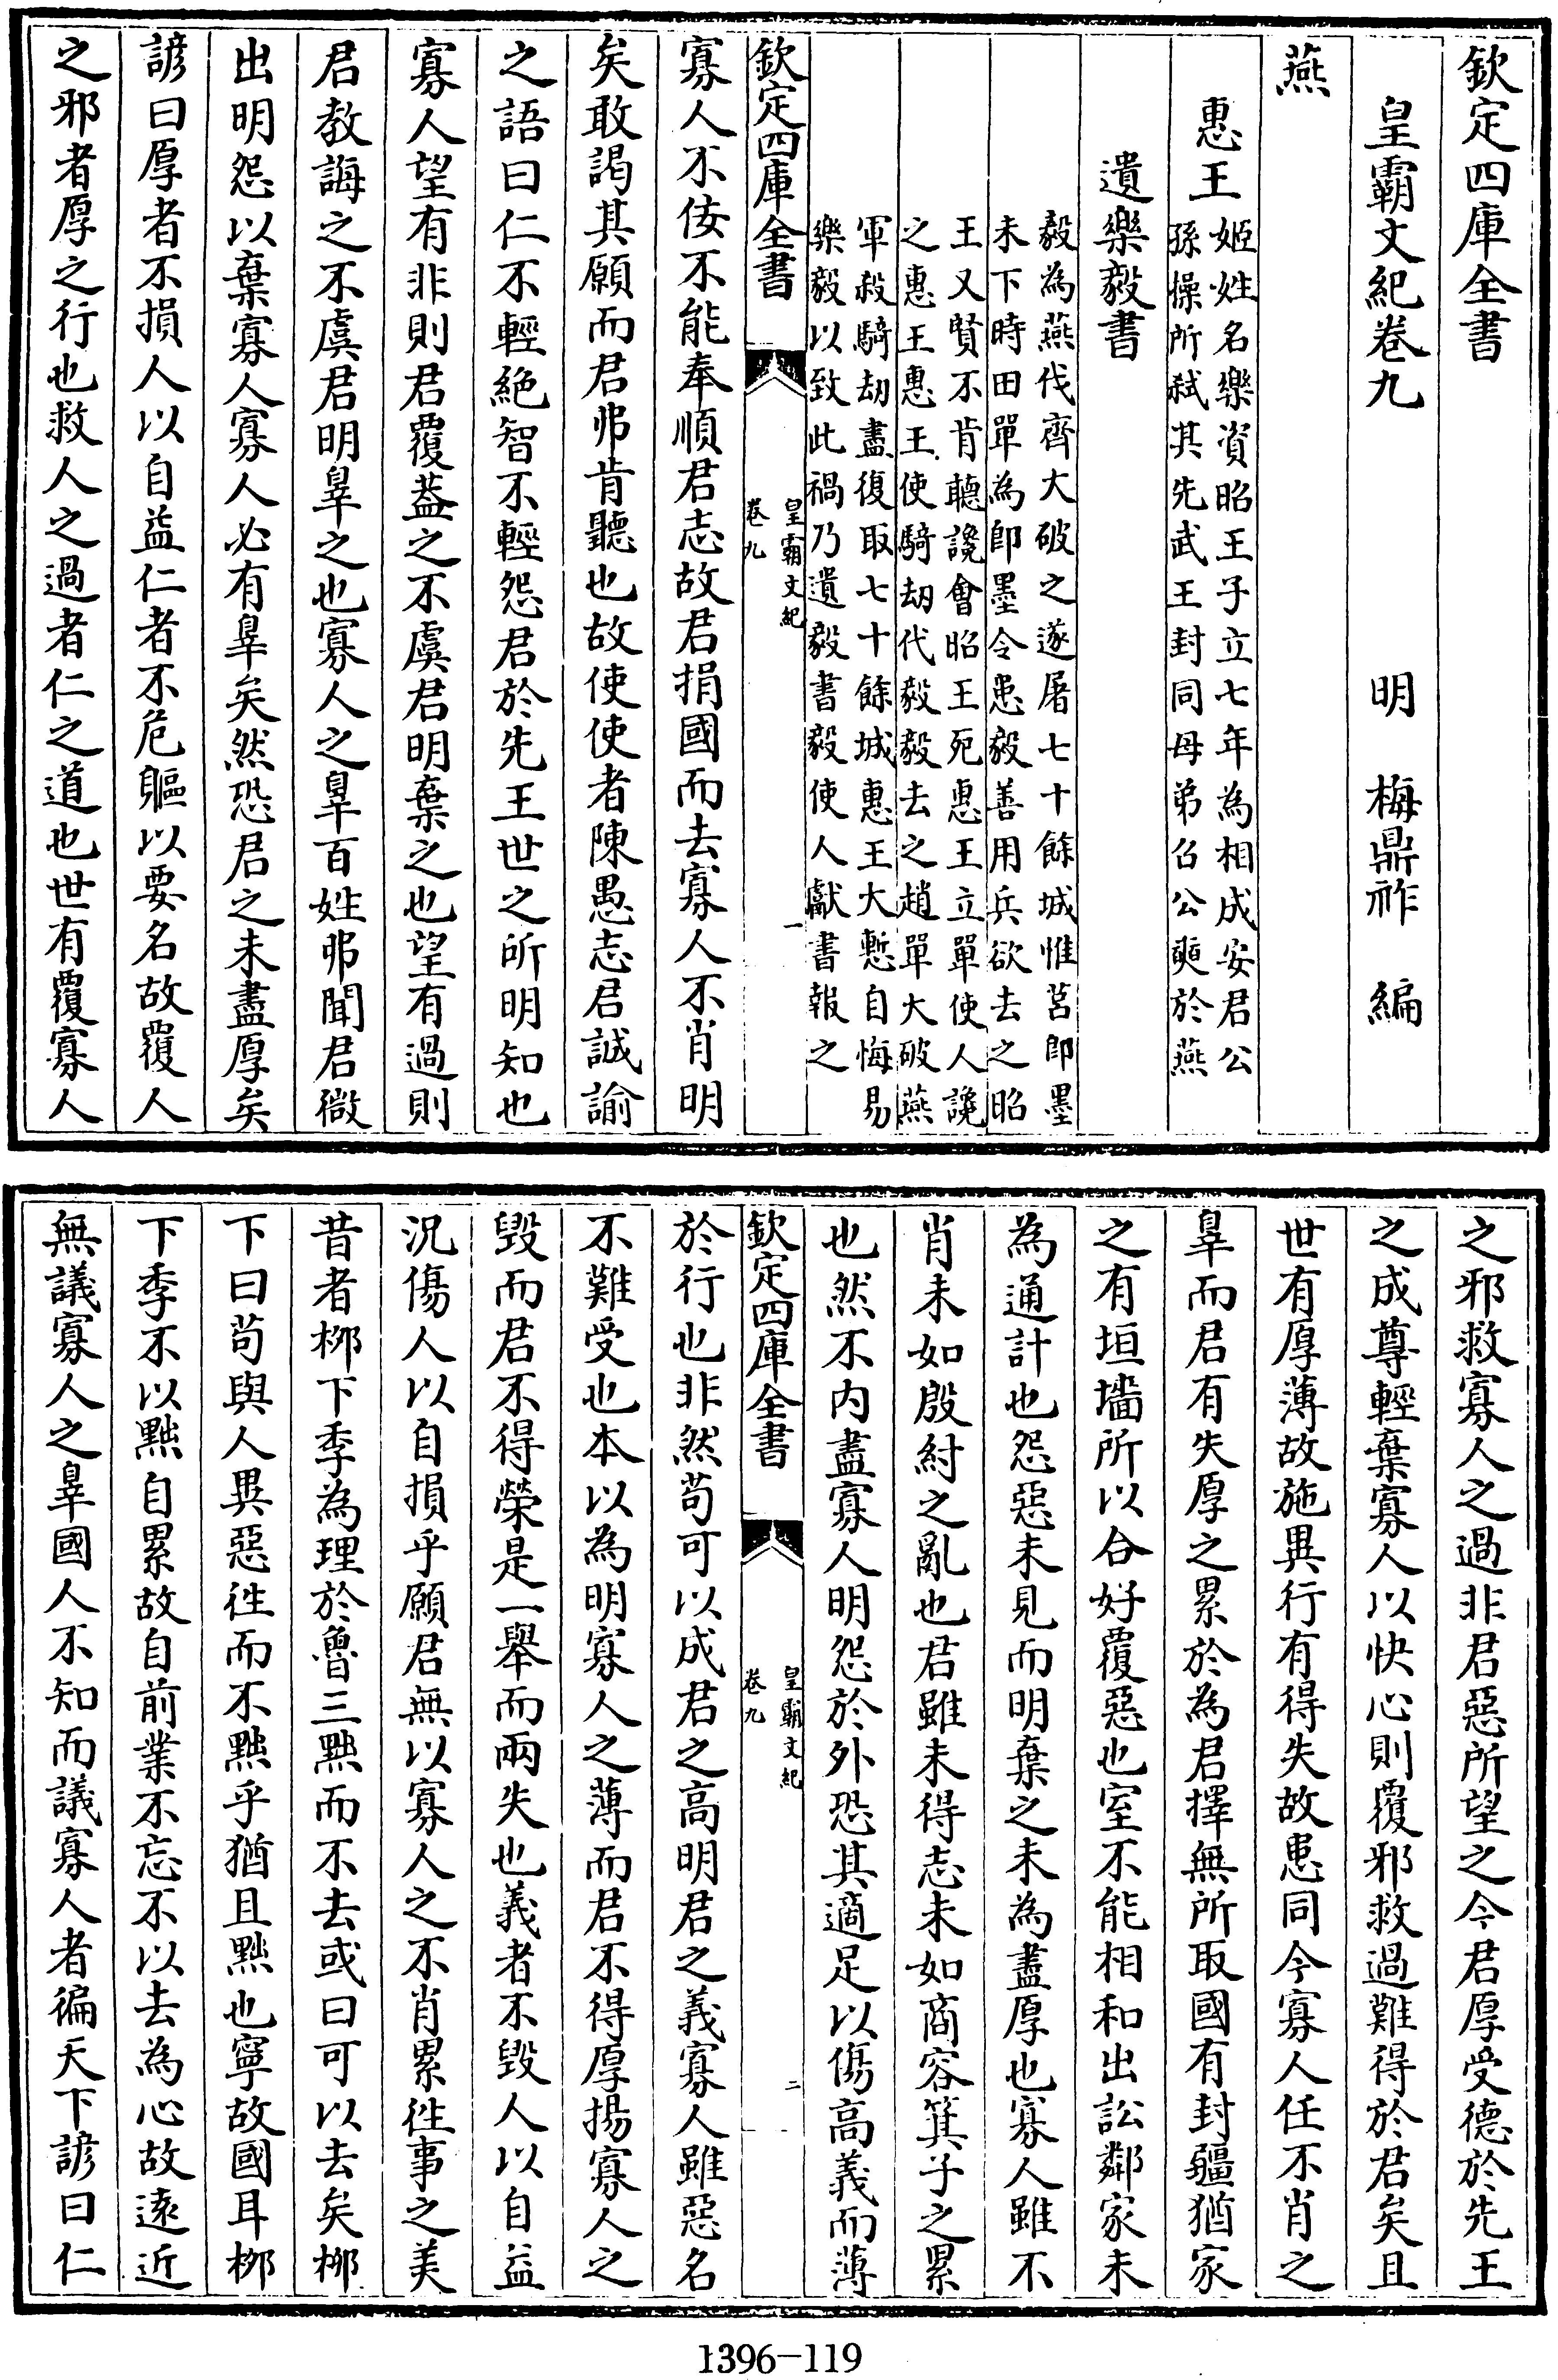 欽定四庫全書
皇霸文紀卷九
明 梅鼎祚 編
燕
惠王
姬姓名樂資昭王子立七年為相成安君公
孫操所弑其先武王封同母弟召公奭於燕
遺樂毅書
毅為燕伐齊大破之遂屠七十餘城惟莒即墨
未下時田單為即墨令患毅善用兵欲去之昭
王又賢不肯聽讒會昭王死惠王立單使人讒
之惠王惠王使騎劫代毅毅去之趙單大破燕
軍殺騎劫盡復取七十餘城惠王大慙自悔易
樂毅以致此禍乃遺毅書毅使人獻書報之
欽定四庫全書
皇霸文紀
卷九
一
寡人不佞不能奉順君志故君捐國而去寡人不肖明
矣敢謁其願而君弗肯聽也故使使者陳愚志君誠諭
之語曰仁不輕絶智不輕怨君於先王世之所明知也
寡人望有非則君覆葢之不虞君明棄之也望有過則
君教誨之不虞君明辠之也寡人之辠百姓弗聞君微
出明怨以棄寡人寡人必有辠矣然恐君之未盡厚矣
諺曰厚者不損人以自益仁者不危軀以要名故覆人
之邪者厚之行也救人之過者仁之道也世有覆寡人
之邪救寡人之過非君惡所望之今君厚受德於先王
之成尊輕棄寡人以快心則覆邪救過難得於君矣且
世有厚薄故施異行有得失故患同今寡人任不肖之
辠而君有失厚之累於為君擇無所取國有封疆猶家
之有垣墻所以合好覆惡也室不能相和出訟鄰家未
為通計也怨惡未見而明棄之未為盡厚也寡人雖不
肖未如殷紂之亂也君雖未得志未如商容箕子之累
也然不内盡寡人明怨於外恐其適足以傷高義而薄
欽定四庫全書
皇霸文紀
卷九
二
於行也非然苟可以成君之高明君之義寡人雖惡名
不難受也本以為明寡人之薄而君不得厚揚寡人之
毁而君不得榮是一舉而兩失也義者不毁人以自益
況傷人以自損乎願君無以寡人之不肖累徃事之美
昔者桞下季為理於魯三黜而不去或曰可以去矣桞
下曰苟與人異惡徃而不黜乎猶且黜也寧故國耳桞
下季不以黜自累故自前業不忘不以去為心故遠近
無議寡人之辠國人不知而議寡人者徧天下諺曰仁
1396-119